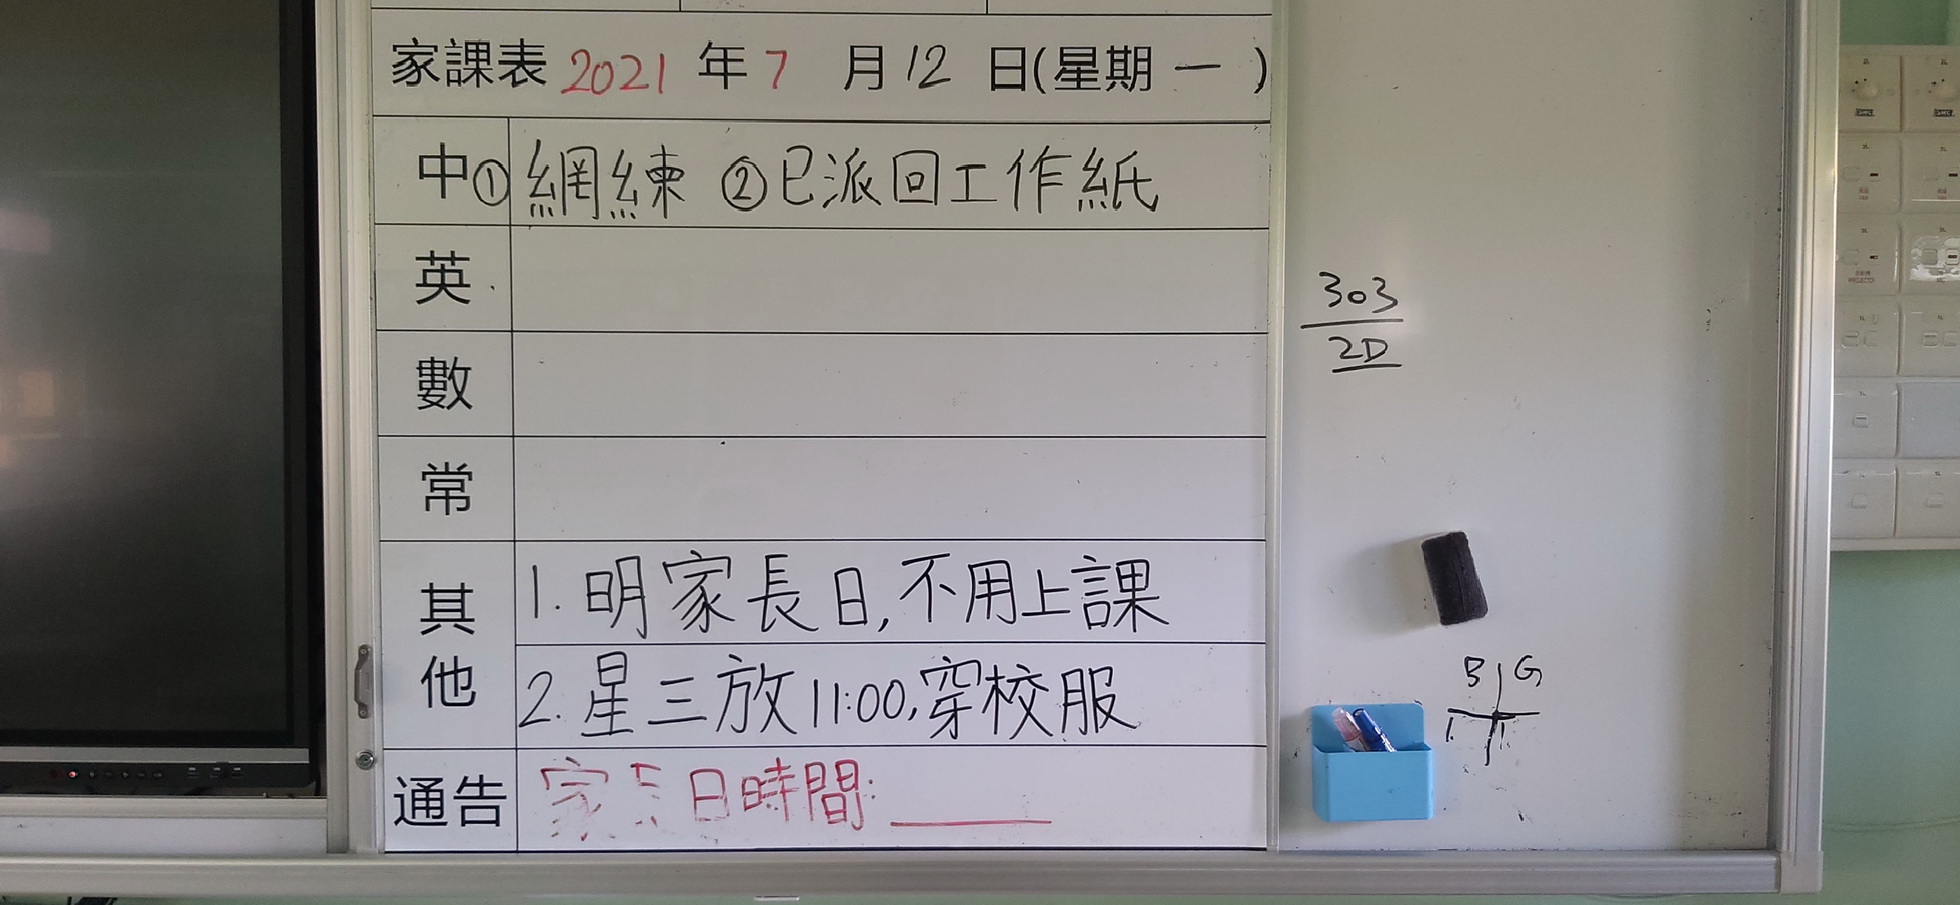 家課表 2021 年 7 月 12 日(星期 一 )
中 ① 網練 ② 已派回工作紙
英
數
常
其他
1. 明家長日,不用上課
2. 星三放11:00,穿校服
通告 家長日時間:
303
2D
B G
1. 1.